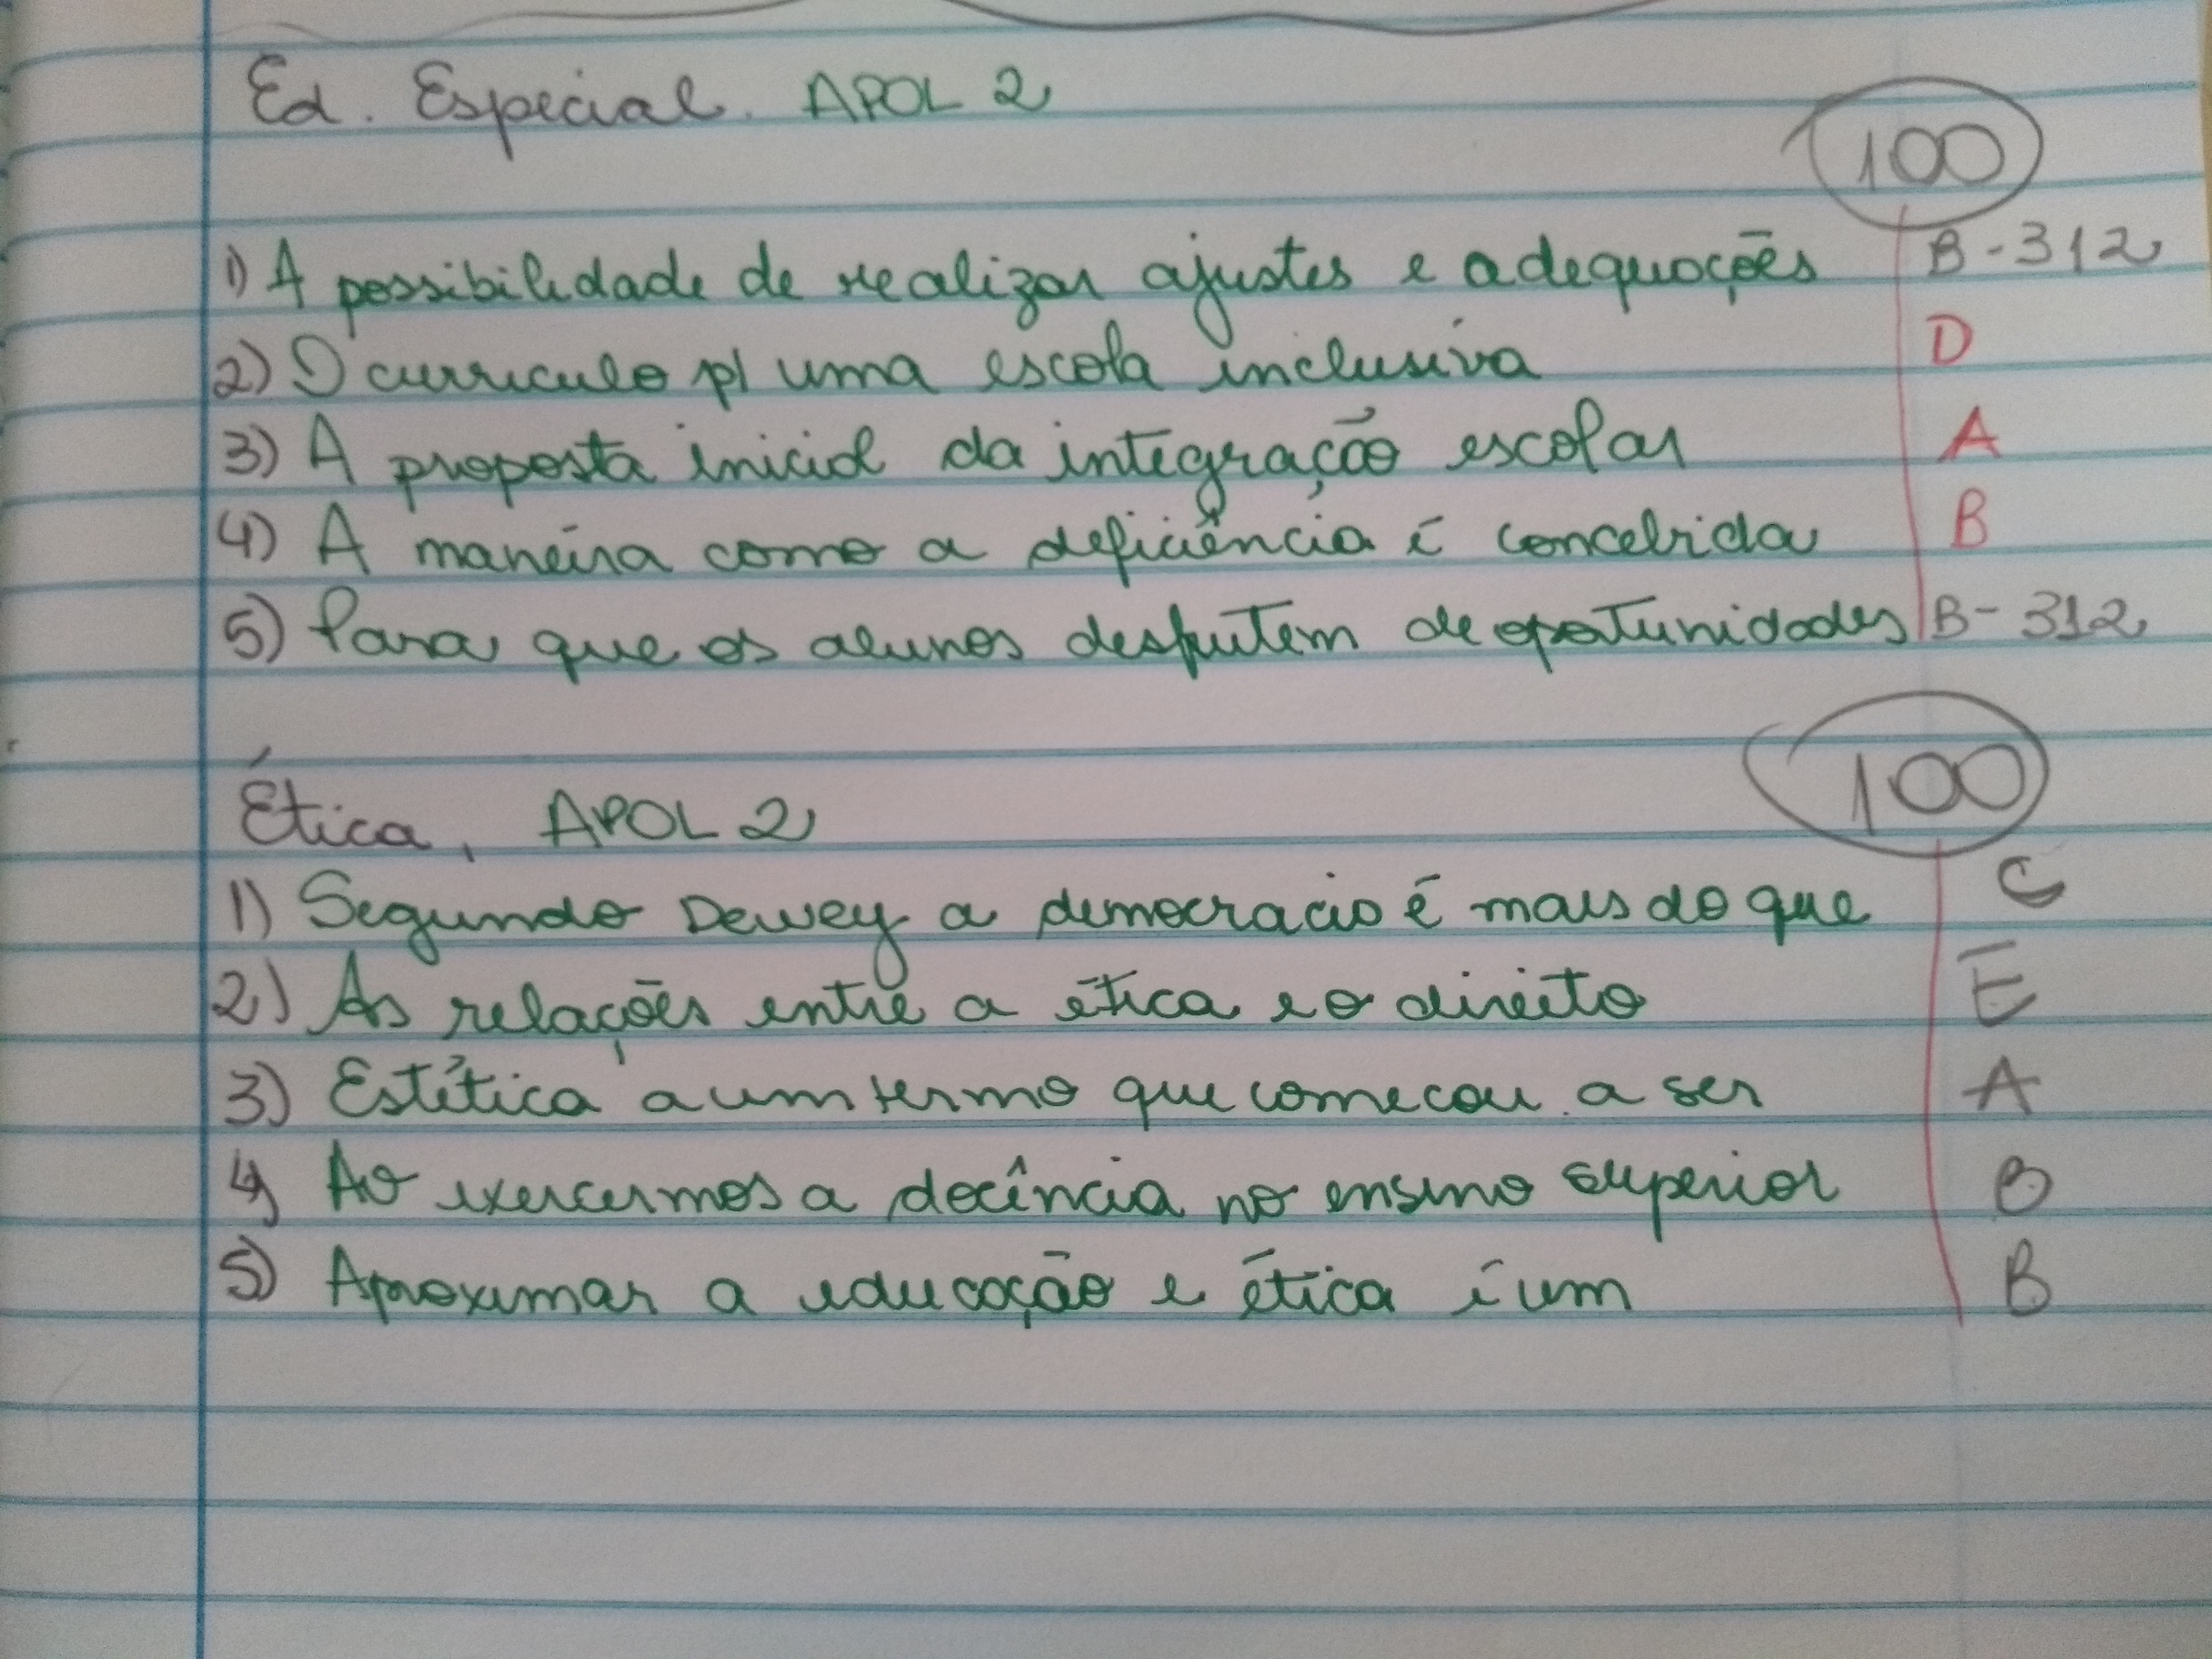 Ed. Especial. APOL 2
100
1) A possibilidade de realizar ajustes e adequações B - 312
2) O curriculo p/ uma escola inclusiva D
3) A proposta inicial da integração escolar A
4) A maneira como a deficiência é concebida B
5) Para que os alunos desfrutem de oportunidades B - 312
100
Ética, APOL 2
1) Segundo Dewey a democracia é mais do que C
2) As relações entre a ética e o direito E
3) Estética a um termo que comecou a ser A
4) Ao exercermos a docência no ensino superior B
5) Aproximar a educação e ética é um B